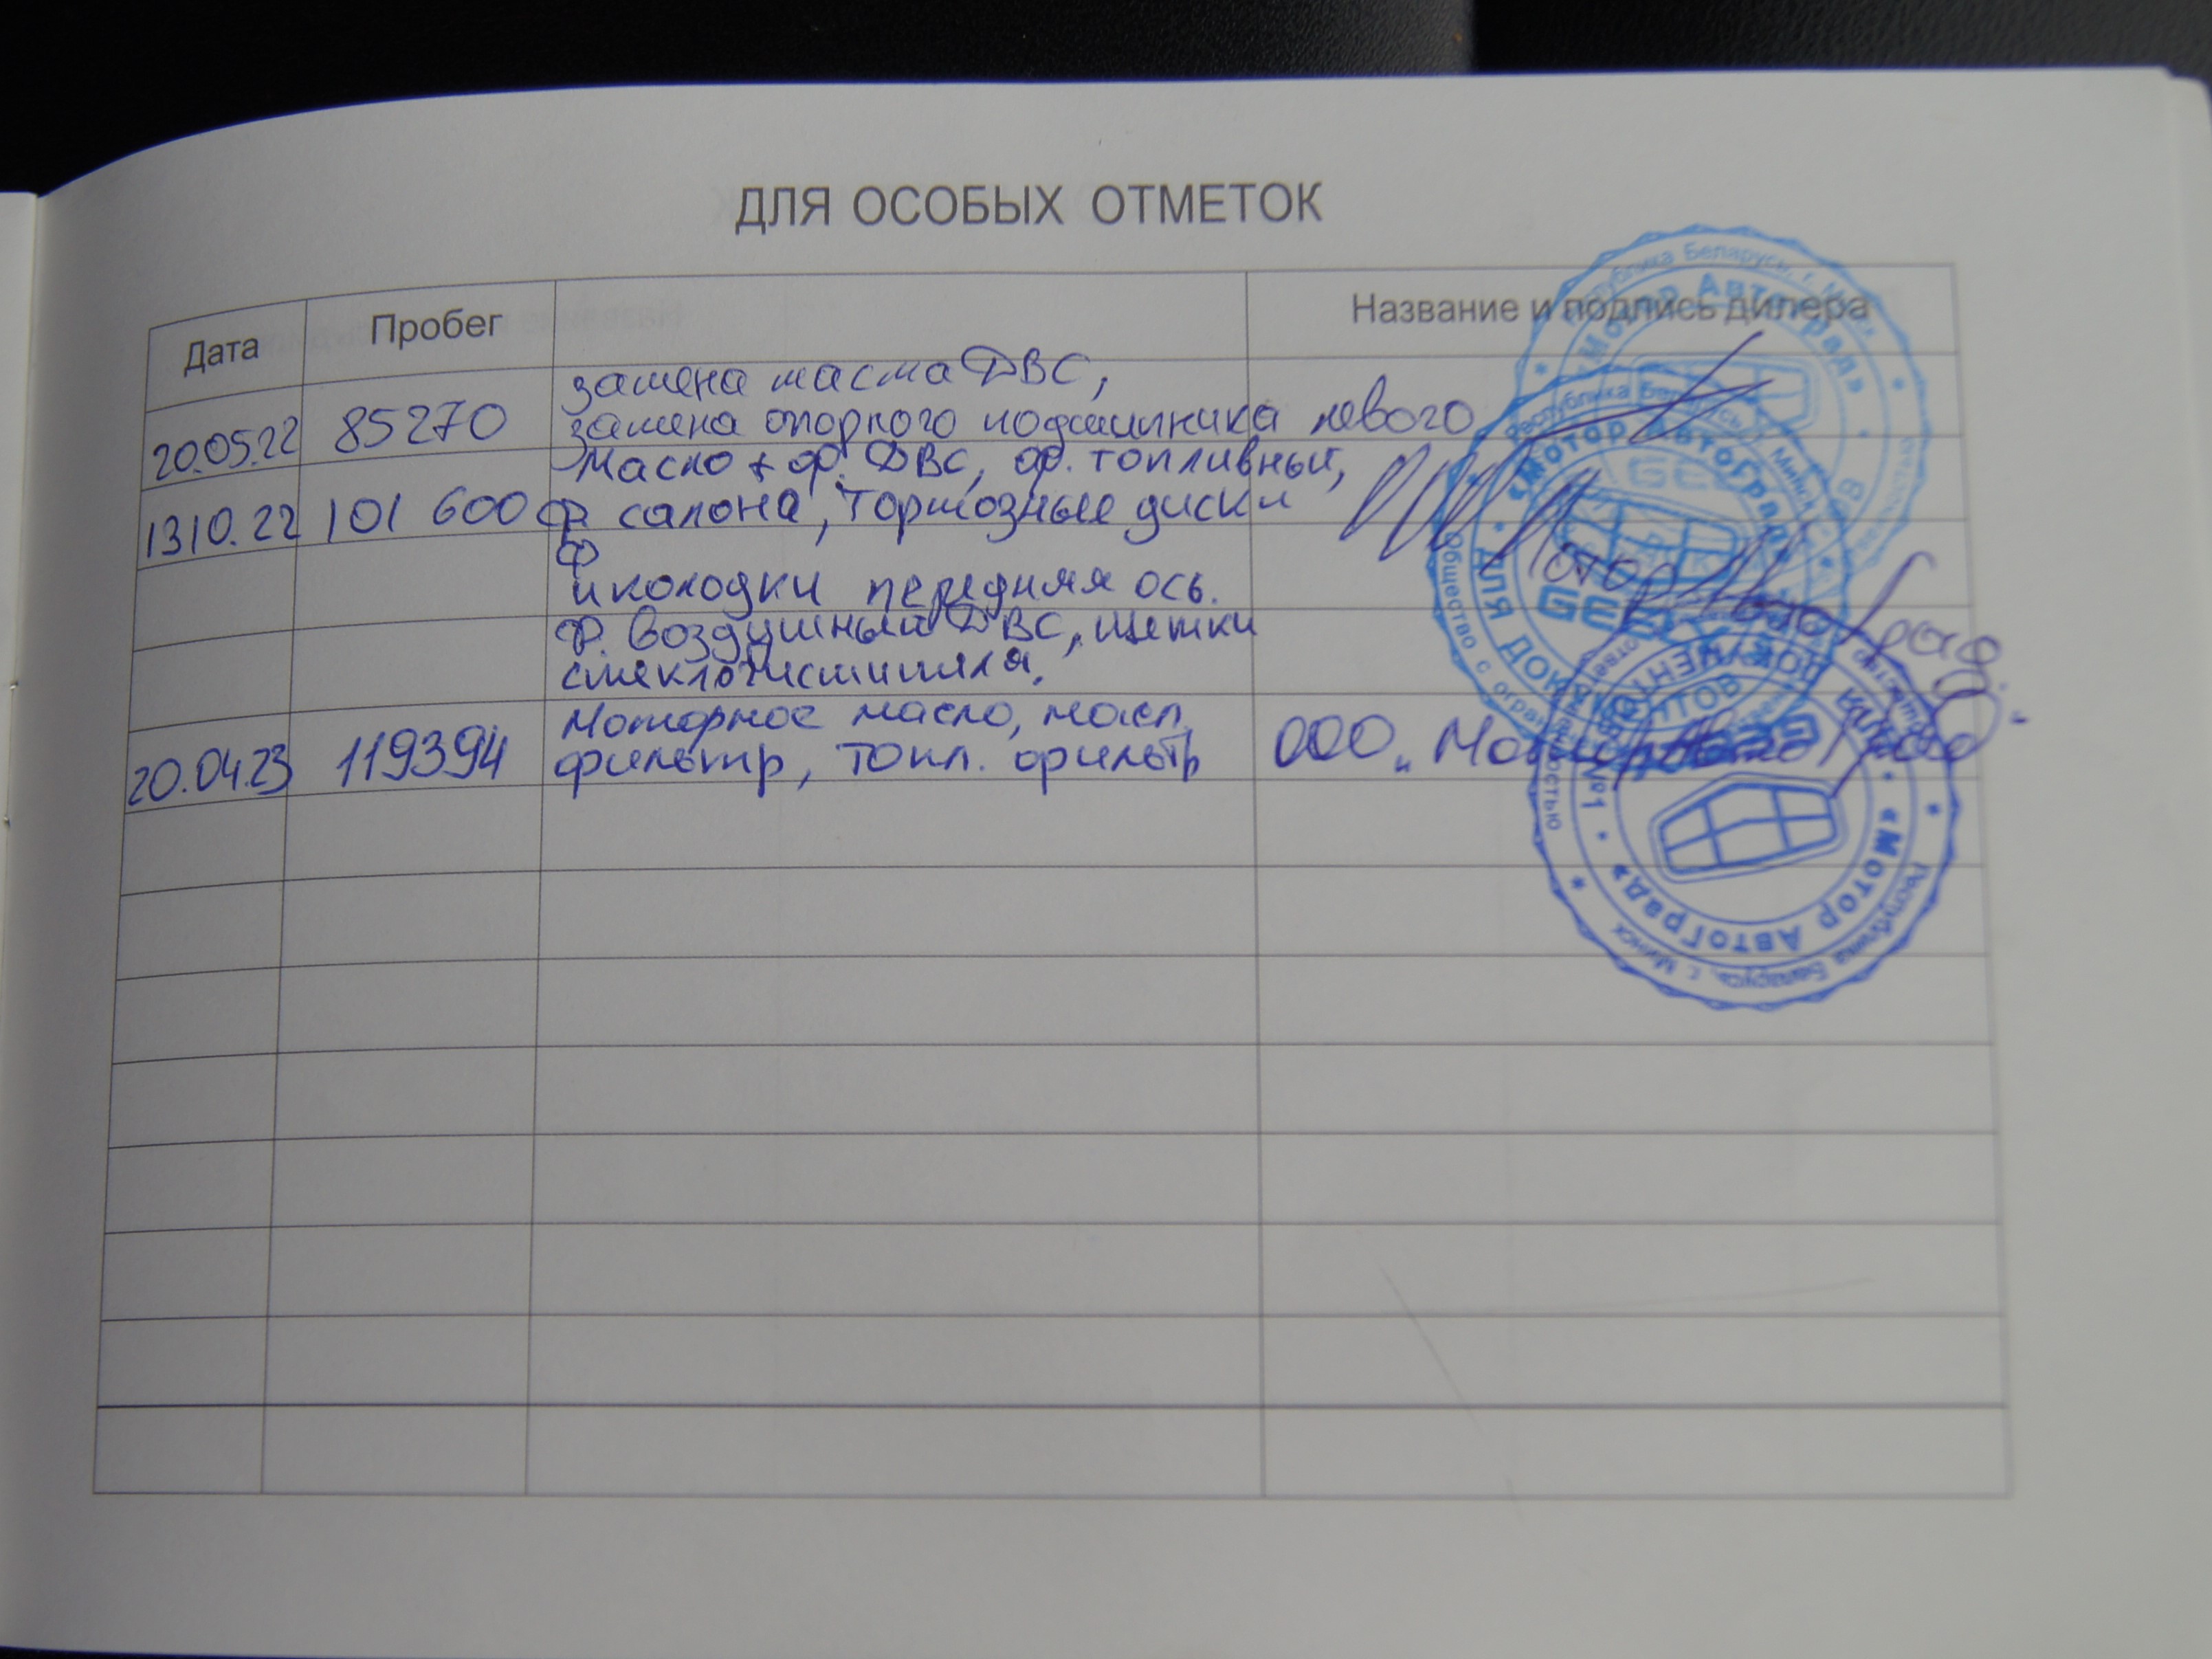 ДЛЯ ОСОБЫХ ОТМЕТОК
Дата Пробег Название и подпись дилера
замена масла ДВС,
20.05.22 85270 замена опорного подшипника левого
Масло + ф. ДВС, ф. топливный,
13.10.22 101 600 ф. салона, тормозные диски
и колодки передняя ось.
ф. воздушный ДВС, щетки
стеклочистителя.
Моторное масло, масл.
20.04.23 119394 фильтр, топл. фильтр ООО "МоторАвтоГрад"
Республика Беларусь, г. Минск
«Мотор АвтоГрад»
GEELY
ДЛЯ ДОКУМЕНТОВ
Республика Беларусь, г. Минск
«Мотор АвтоГрад»
№1